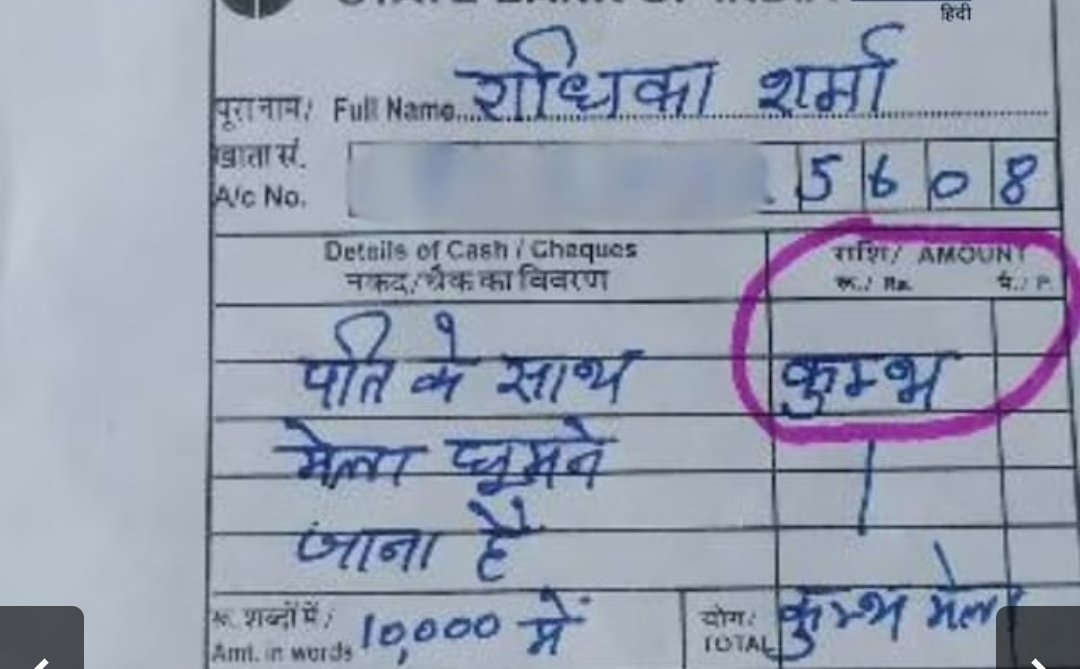 STATE BANK OF INDIA
हिंदी
पूरा नाम/ Full Name राधिका शर्मा
खाता सं.
A/c No. 5608
Details of Cash / Cheques राशि/ AMOUNT
नकद/चैक का विवरण रू./ Rs. पै./ P.
पति के साथ कुम्भ
मेला घूमने
जाना है
रू. शब्दों में/ 10,000 में योग/ कुम्भ मेला
Amt. in words TOTAL